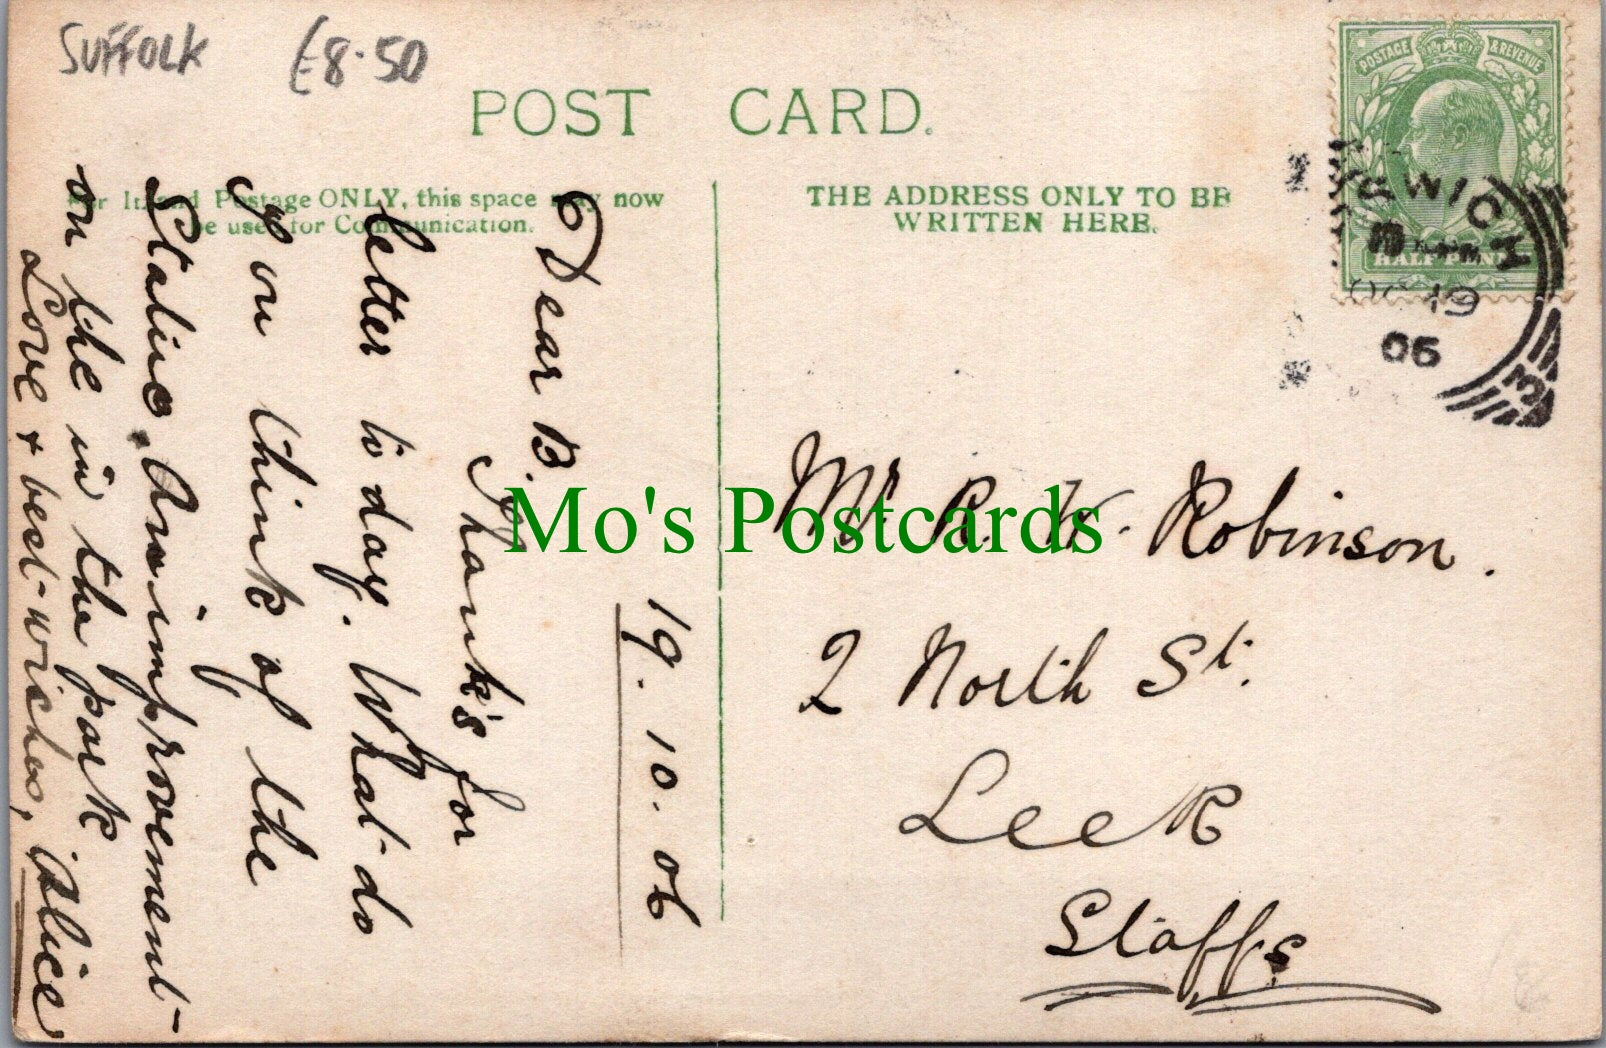 SUFFOLK £8.50
POST CARD.
For Inland Postage ONLY, this space may now
be used for Communication.
THE ADDRESS ONLY TO BE
WRITTEN HERE.
POSTAGE & REVENUE
HALF PENNY
IPSWICH
OC 19
06
3
19.10.06
Dear B.
Thank's for
letter to day. What do
you think of the
Statue. An improvement
on the in the park
Love & best-wishes, Alice
Mr. R. W. Robinson.
2 North St.
Leek
Staffs.
Mo's Postcards